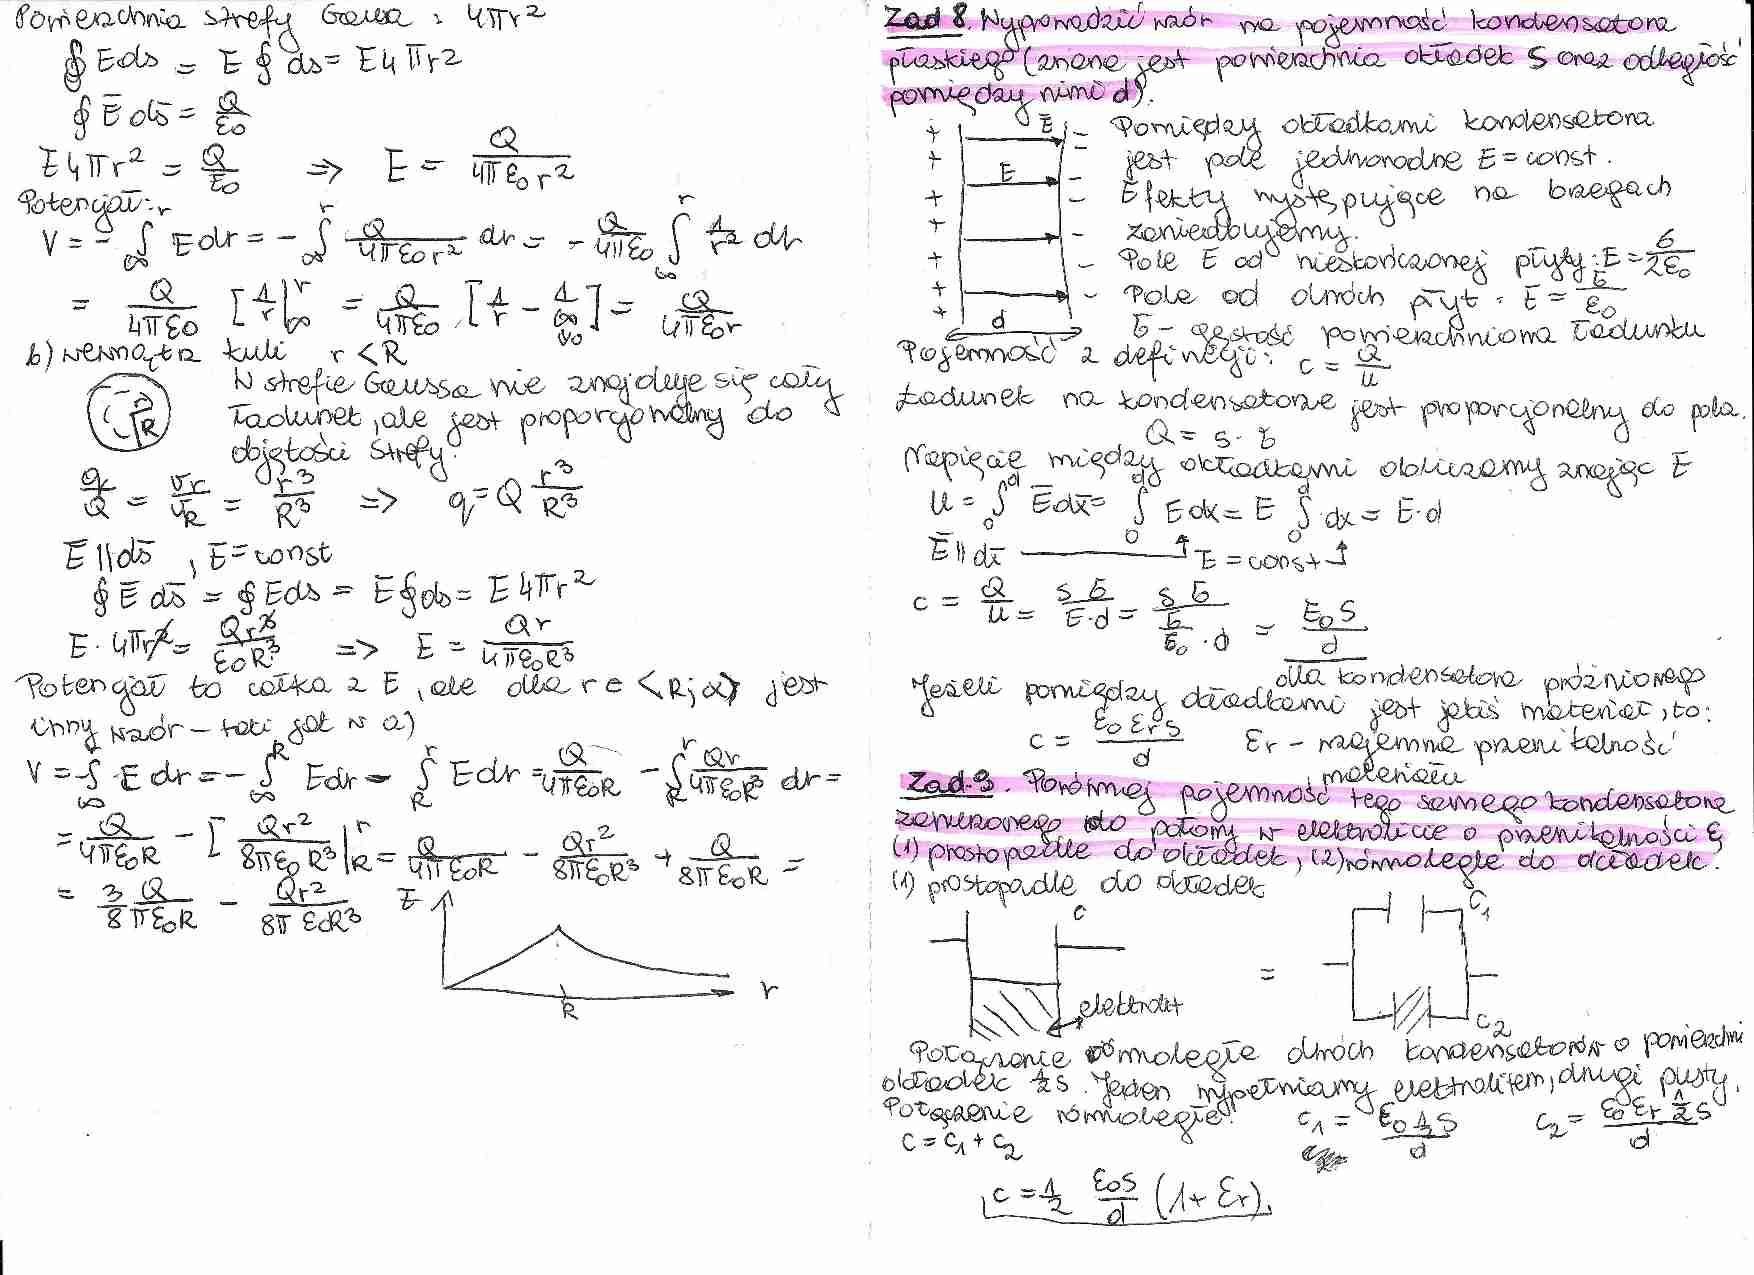 Powierzchnia strefy Gaussa : 4πr²
∮ Eds = E ∮ ds = E4πr²
∮ E̅ ds̅ = Q/ε₀
E4πr² = Q/ε₀ => E = Q/(4πε₀r²)
Potencjał:
V = -∫_∞^r Edr = -∫_∞^r Q/(4πε₀r²) dr = -Q/(4πε₀) ∫_∞^r 1/r² dr
= Q/(4πε₀) [1/r|_∞^r = Q/(4πε₀) [1/r - 1/∞] = Q/(4πε₀r)
b) wewnątrz kuli r<R
W strefie Gaussa nie znajduje się cały
ładunek, ale jest proporcjonalny do
objętości strefy.
R
q/Q = Vr/VR = r³/R³ => q = Q r³/R³
E̅ || ds̅ , E = const
∮ E̅ ds̅ = ∮ Eds = E∮ds = E4πr²
E · 4πr² = Qr³/(ε₀R³) => E = Qr/(4πε₀R³)
Potencjał to całka z E, ale dla r ∈ <R; ∞) jest
inny wzór - taki jak w a)
V = -∫_∞^r E dr = -∫_∞^R Edr - ∫_R^r Edr = Q/(4πε₀R) - ∫_R^r Qr/(4πε₀R³) dr =
= Q/(4πε₀R) - [Qr²/(8πε₀R³)|_R^r = Q/(4πε₀R) - Qr²/(8πε₀R³) + Q/(8πε₀R) =
= 3/8 Q/(πε₀R) - Qr²/(8πε₀R³)
E
r
R
Zad 8. Wyprowadzić wzór na pojemność kondensatora
płaskiego (znana jest powierzchnia okładek S oraz odległość
pomiędzy nimi d).
+ + + + + + +
E̅
E
d
- Pomiędzy okładkami kondensatora
jest pole jednorodne E = const.
- Efekty występujące na brzegach
- zaniedbujemy.
- Pole E od nieskończonej płyty: E = σ/(2ε₀)
- Pole od dwóch płyt : E = σ/ε₀
σ - gęstość powierzchniowa ładunku
Pojemność z definicji: C = Q/U
Ładunek na kondensatorze jest proporcjonalny do pola.
Q = S · σ
Napięcie między okładkami obliczamy znając E
U = ∫₀^d E̅dx̅ = ∫₀^d Edx = E ∫₀^d dx = E·d
E̅ || dx̅ E = const
C = Q/U = Sσ/(E·d) = Sσ/(σ/ε₀ · d) = ε₀S/d
dla kondensatora próżniowego
Jeżeli pomiędzy okładkami jest jakiś materiał, to:
C = ε₀εrS/d εr - wzajemna przenikalność
materiału
Zad.9. Porównaj pojemność tego samego kondensatora
zanurzonego do połowy w elektrolicie o przenikalności ε
(1) prostopadle do okładek, (2) równolegle do okładek.
(1) prostopadle do okładek
C
elektrolit
=
C₁
C₂
Połączenie równoległe dwóch kondensatorów o powierzchni
okładek ½S. Jeden wypełniamy elektrolitem, drugi pusty.
Połączenie równoległe:
C₁ = ε₀ ½ S/d C₂ = ε₀ εr ½ S/d
C = C₁ + C₂
C = ½ ε₀S/d (1 + εr).